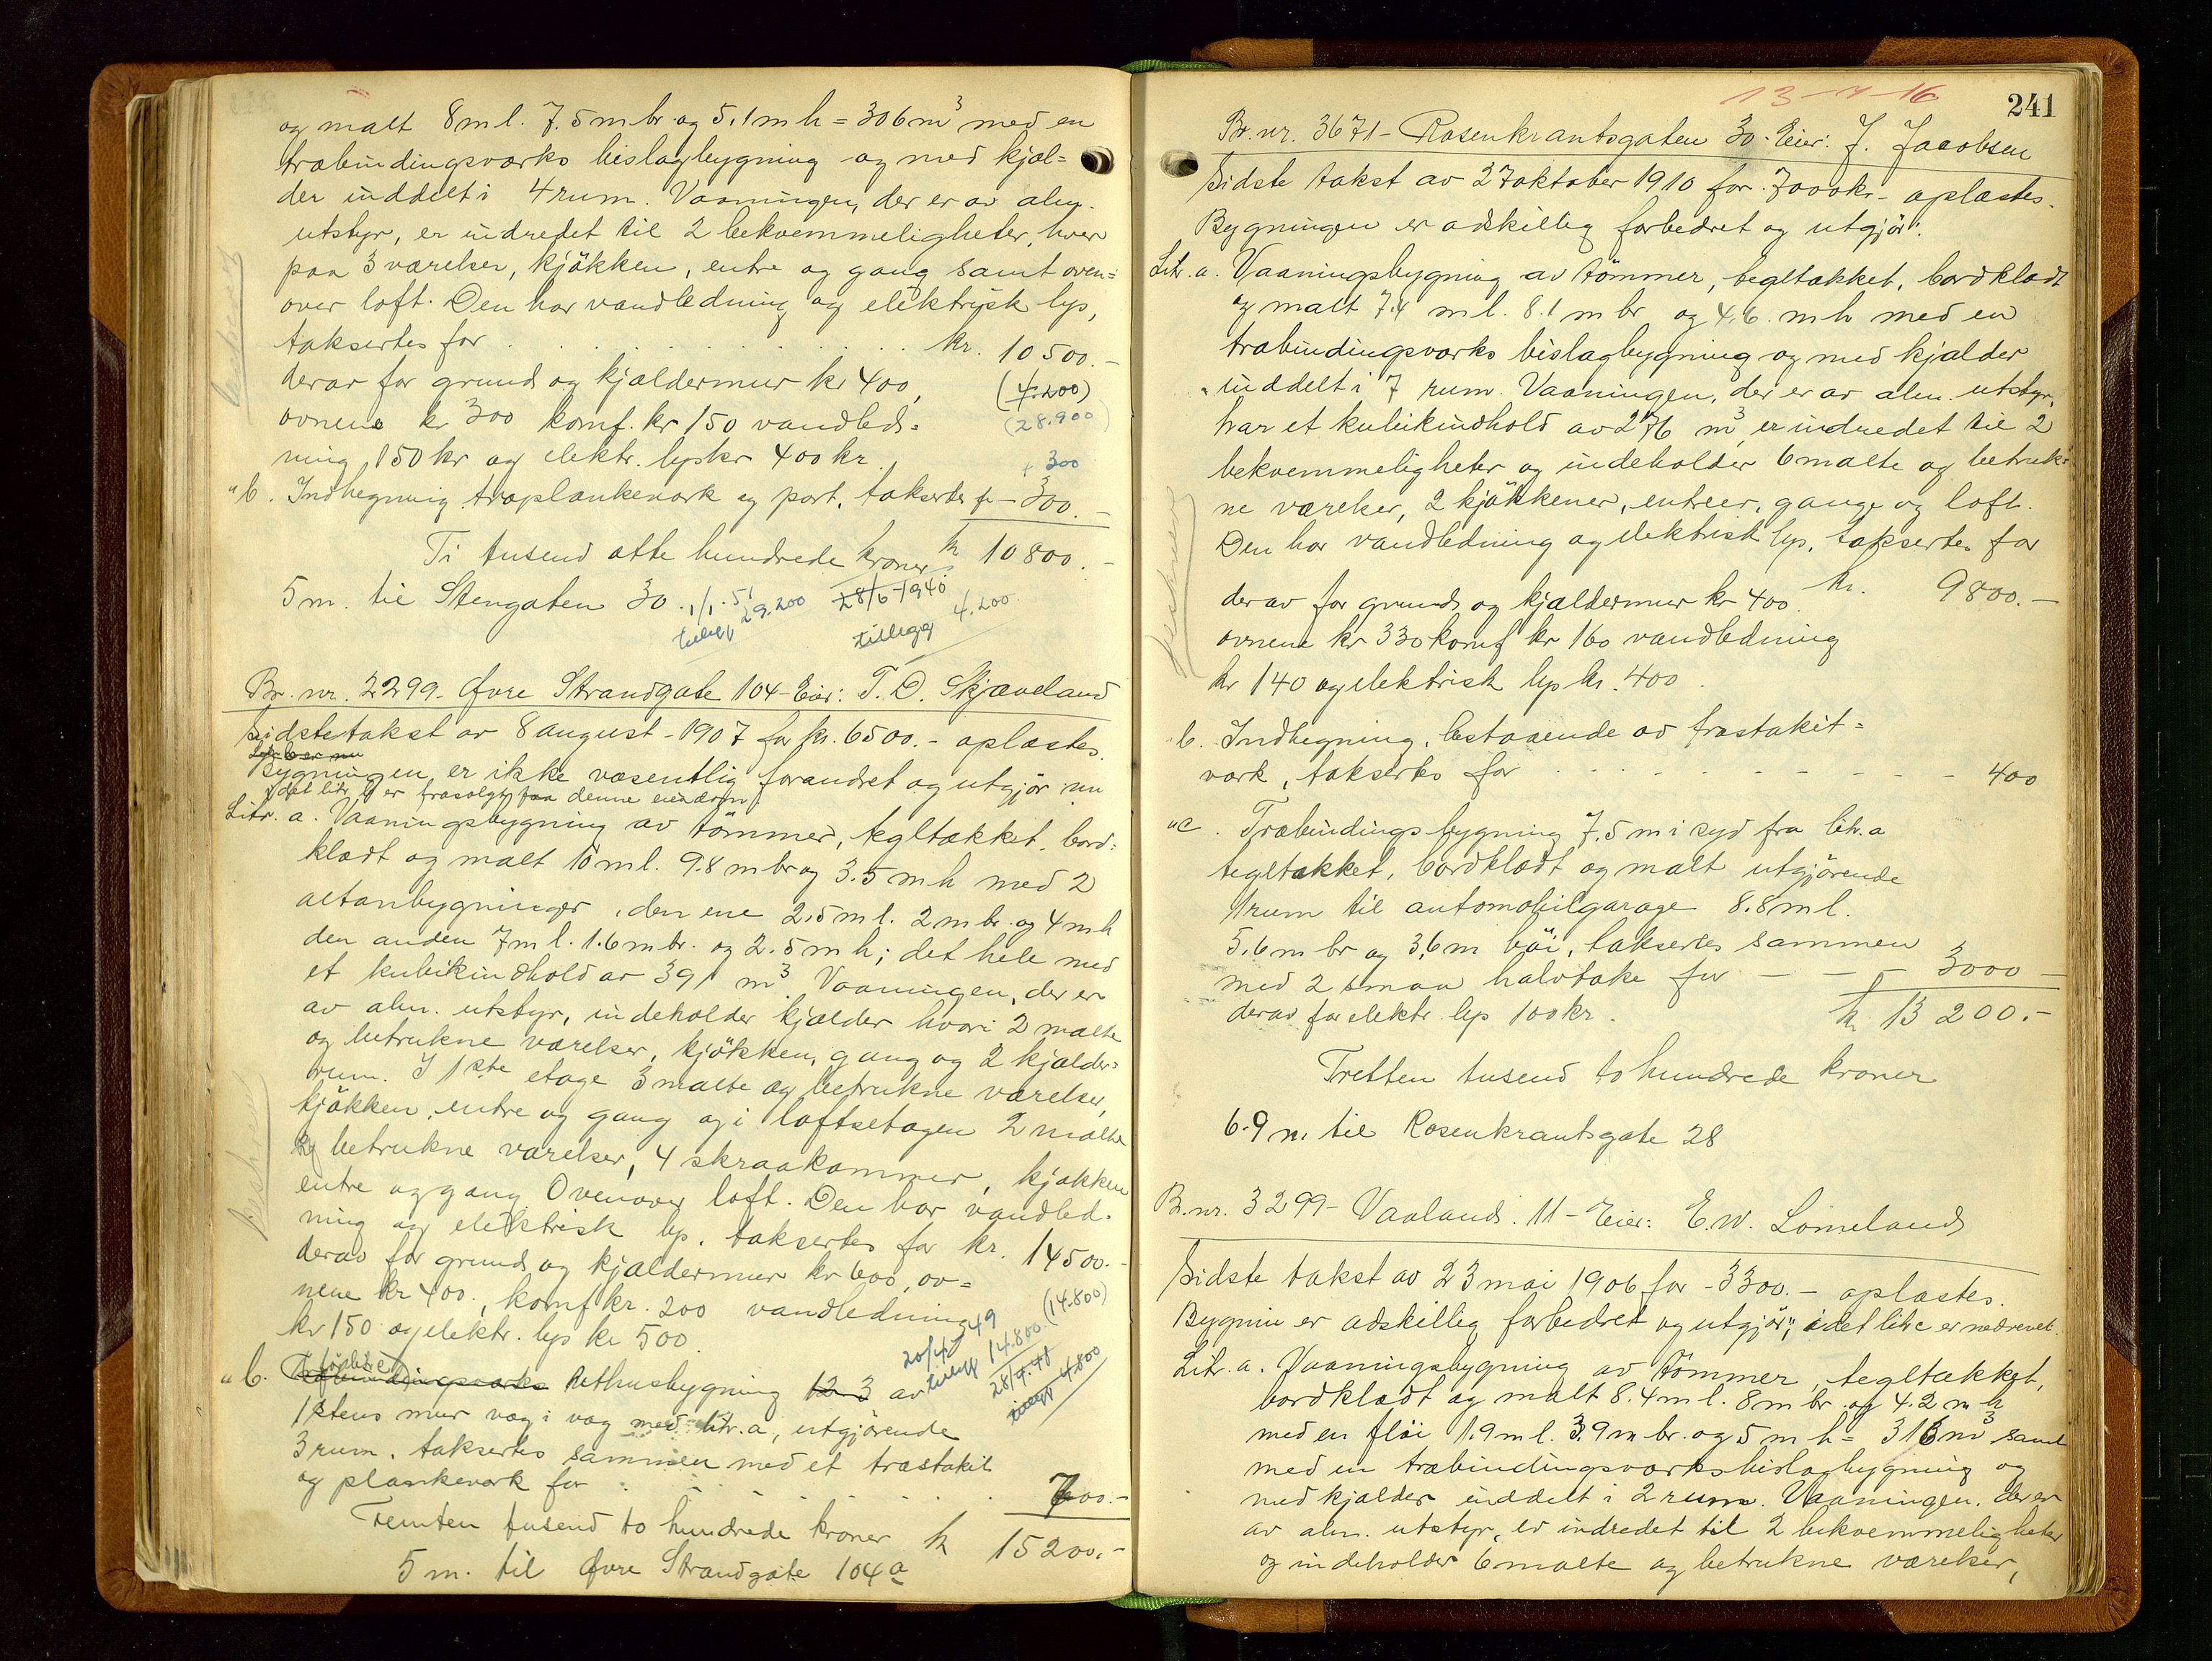 og malt 8 m l. 7.5 m br og 5.1 m h = 306 m³ med en
træbindingsværks bislagbygning og med kjæl=
der inddelt i 4 rum. Vaaningen, der er av alm.
utstyr, er indredet til 2 bekvemmeligheter, hver
paa 3 værelser, kjökken, entre og gang samt oven=
over loft. Den har vandledning og elektrisk lys,
taksertes for . . . . . . . . . kr. 10500.-
derav for grund og kjældermur kr 400, (4.200)
ovnene kr 300 komf. kr 150 vandled- (28.900)
ning 150 kr og elektr. lys kr 400 kr. + 300
" b. Indhegning træplankeværk og port, taksertes fr - 300.-
Ti tusend otte hundrede kroner kr 10800.-
5 m. til Stengaten 30. 1/1-51 29.200 28/6-1940
tillegg tillegg 4.200
Br. nr. 2299- Øvre Strandgate 104- Eier: T. O. Skjæveland
Sidste takst av 8 august - 1907 for kr. 6500.- oplæstes.
Litr b er nu
Bygningen er ikke væsentlig forandret og utgjör nu
idet litr b er frasolgt fra denne eiendom
Litr. a. Vaaningsbygning av tömmer, tegltækket, bord=
klædt og malt 10 m l. 9.8 m br og 3.5 m h med 2
altanbygninger, den ene 2,5 m l. 2 m br. og 4 m h
den anden 7 m l. 1.6 m br. og 2.5 m h; det hele med
et kubikindhold av 391 m³. Vaaningen, der er
av alm. utstyr, indeholder kjælder hvori 2 malte
og betrukne værelser, kjökken, gang og 2 kjælder=
rum. I 1ste etage 3 malte og betrukne værelser,
kjökken, entre og gang og i loftsetagen 2 malte
og betrukne værelser, 4 skraakammer, kjøkken
entre og gang Ovenover loft. Den har vandled-
ning og elektrisk lys, taksertes for kr. 14500.-
derav for grund og kjældermur kr 600, ov=
nene kr 400, komf kr. 200 vandledning (14.800)
kr 150 og elektr. lys kr 500. 20/4-49
tillegg 14.800
" b. Træbindingsværks Uthusbygning 12 3 av 28/9-48
1 stens mur væg i væg med litr. a, utgjörende tillegg 4.800
3 rum, taksertes sammen med et træstakit
og plankeværk for . . . . . . . 700.-
Femten tusend to hundrede kroner kr 15200.-
5 m. til Øvre Strandgate 104 a
Beskrevet
Beskrevet
13-7-16
241
Br. nr. 3671- Rosenkrantsgaten 30- Eier: J. Jacobsen
Sidste takst av 27 oktober 1910 for 7000 kr- oplæstes.
Bygningen er adskillig forbedret og utgjör:
Litr. a. Vaaningsbygning av tömmer, tegltækket, bordklædt
og malt 7.4 m l. 8.1 m br og 4.6. m h med en
træbindingsværks bislagbygning og med kjælder
inddelt i 7 rum. Vaaningen, der er av alm. utstyr,
har et kubikindhold av 276 m³, er indredet til 2
bekvemmeligheter og indeholder 6 malte og betruk-
ne værelser, 2 kjökkener, entreer, gange og loft.
Den har vandledning og elektrisk lys, taksertes for
kr. 9800.-
derav for grund og kjældermur kr 400.
ovnene kr 330 komf kr 160 vandledning
kr 140 og elektrisk lys kr. 400.
" b. Indhegning, bestaaende av træstakit=
værk, taksertes for . . . . - - - - 400
" c. Træbindingsbygning 7,5 m i syd fra litr. a
tegltækket, bordklædt og malt utgjörende
1 rum til automobilgarage 8.8 m l.
5,6 m br og 3,6 m höi, taksertes sammen
med 2 smaa halvtake for - - - 3000 -
derav for elektr. lys 100 kr. kr 13 200.-
Tretten tusend to hundrede kroner
6.9 m. til Rosenkrantsgate 28
Beskrevet
B.nr. 3299- Vaaland. 11- Eier: E. W. Lomeland
Sidste takst av 23 mai 1906 for - 3300.- oplæstes.
Bygnin er adskillig forbedret og utgjör, idet litr c er nedrevet.
Litr. a. Vaaningsbygning av tömmer, tegltækket,
bordklædt og malt 8.4 m l. 8 m br. og 4.2 m h
med en flöi 1.9 m l. 3.9 m br. og 5 m h = 316 m³ samt
med en træbindingsværksbislagbygning og
med kjælder inddelt i 2 rum. Vaaningen, der er
av alm. utstyr, er indredet til 2 bekvemmeligheter
og indeholder 6 malte og betrukne værelser,